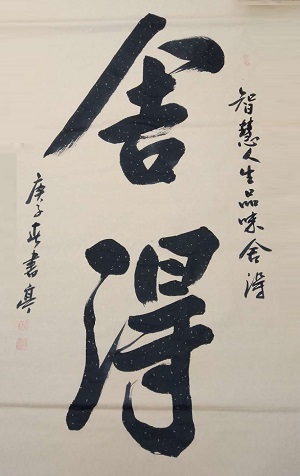 智慧人生品味舍得
舍得
庚子春书亭